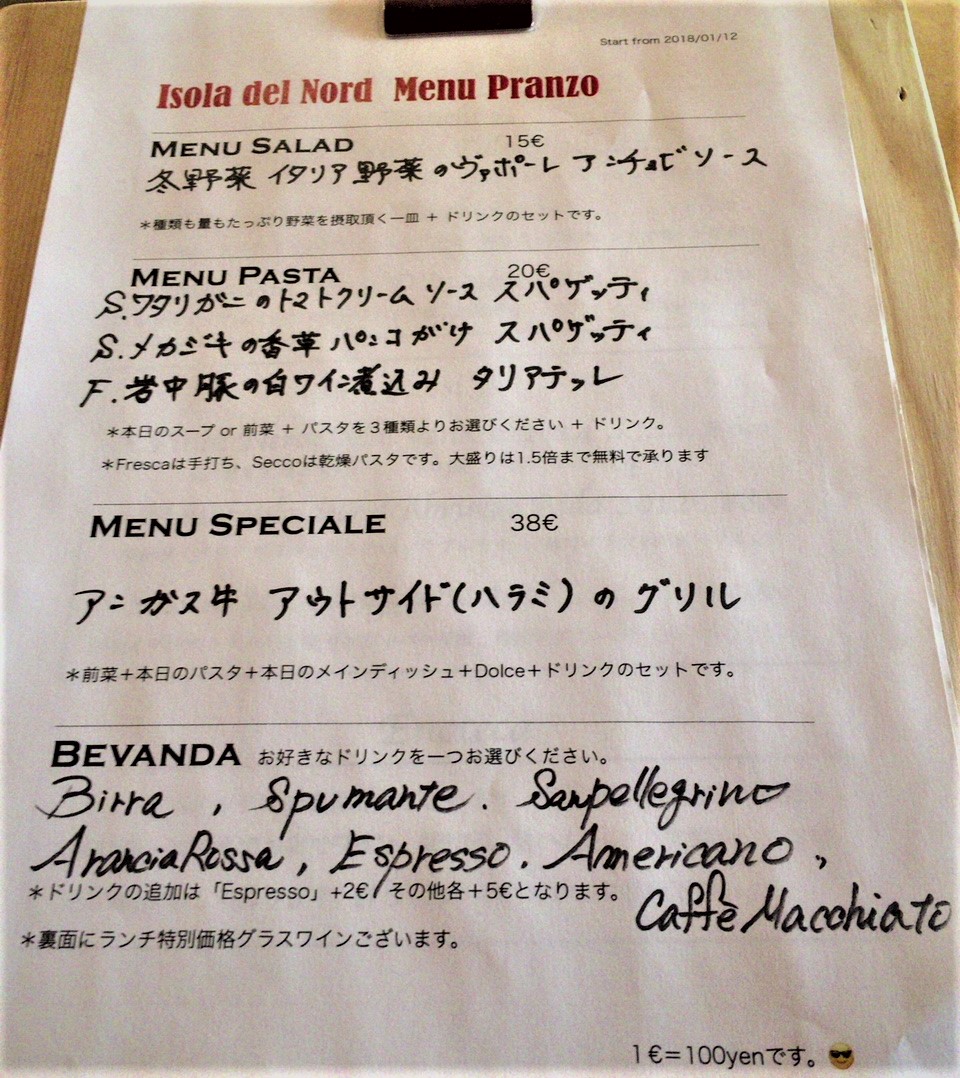 Start from 2018/01/12
Isola del Nord Menu Pranzo
MENU SALAD 15€
冬野菜 イタリア野菜のヴァポーレ アンチョビソース
＊種類も量もたっぷり野菜を摂取頂く一皿 ＋ ドリンクのセットです。
MENU PASTA 20€
S.ワタリガニのトマトクリームソース スパゲッティ
S.メカジキの香草パンコがけ スパゲッティ
F.岩中豚の白ワイン煮込み タリアテッレ
＊本日のスープ or 前菜 ＋ パスタを３種類よりお選びください ＋ ドリンク。
＊Frescaは手打ち、Seccoは乾燥パスタです。大盛りは1.5倍まで無料で承ります
MENU SPECIALE 38€
アンガス牛 アウトサイド(ハラミ)のグリル
＊前菜＋本日のパスタ＋本日のメインディッシュ＋Dolce＋ドリンクのセットです。
BEVANDA お好きなドリンクを一つお選びください。
Birra , Spumante. Sanpellegrino
AranciaRossa, Espresso. Americano ,
＊ドリンクの追加は「Espresso」+2€ その他各＋5€となります。
Caffè Macchiato
＊裏面にランチ特別価格グラスワインございます。
1€=100yenです。😎